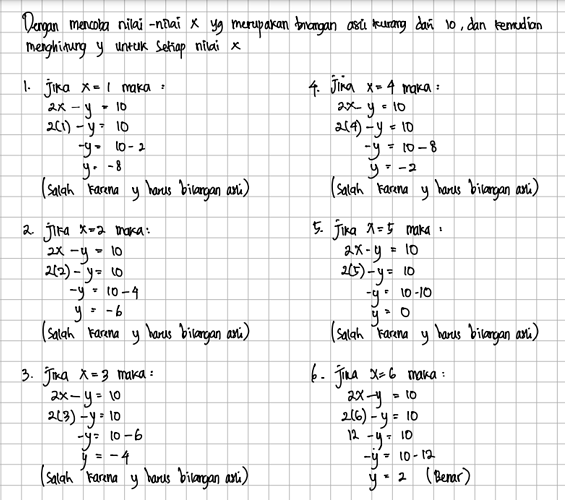 Dengan mencoba nilai-nilai x yg merupakan bilangan asli kurang dari 10, dan kemudian
menghitung y untuk setiap nilai x
1. Jika x = 1 maka :
2x - y = 10
2(1) - y = 10
-y = 10 - 2
y = -8
(salah karena y harus bilangan asli)
2. Jika x = 2 maka :
2x - y = 10
2(2) - y = 10
-y = 10 - 4
y = -6
(salah karena y harus bilangan asli)
3. Jika x = 3 maka :
2x - y = 10
2(3) - y = 10
-y = 10 - 6
y = -4
(salah karena y harus bilangan asli)
4. Jika x = 4 maka :
2x - y = 10
2(4) - y = 10
-y = 10 - 8
y = -2
(salah karena y harus bilangan asli)
5. Jika x = 5 maka :
2x - y = 10
2(5) - y = 10
-y = 10 - 10
y = 0
(salah karena y harus bilangan asli)
6. Jika x = 6 maka :
2x - y = 10
2(6) - y = 10
12 - y = 10
-y = 10 - 12
y = 2 (Benar)